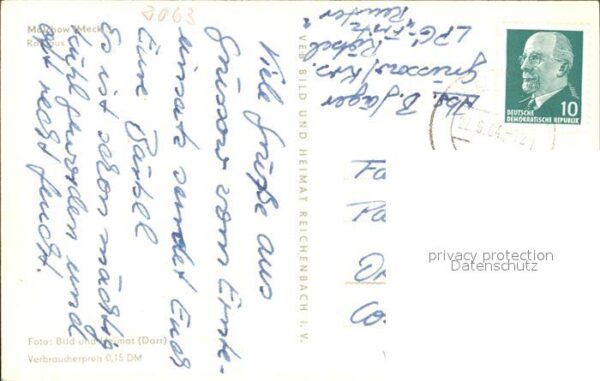 2063
Malchow (Meckl.)
Rathaus
Viel Grüße aus
Grüssow vom Ernte-
einsatz sendet Euch
Eure Bärbel
Es ist schon mächtig
kühl geworden und
oft recht feucht.
Foto: Bild und Heimat (Darr)
Verbraucherpreis 0,15 DM
VEB BILD UND HEIMAT REICHENBACH i. V.
Abs. B. Jäger
Grüssow/Krs. Röbel
LPG „Fritz
Reuter"
DEUTSCHE
DEMOKRATISCHE REPUBLIK
10
Fa
Co
privacy protection
Datenschutz